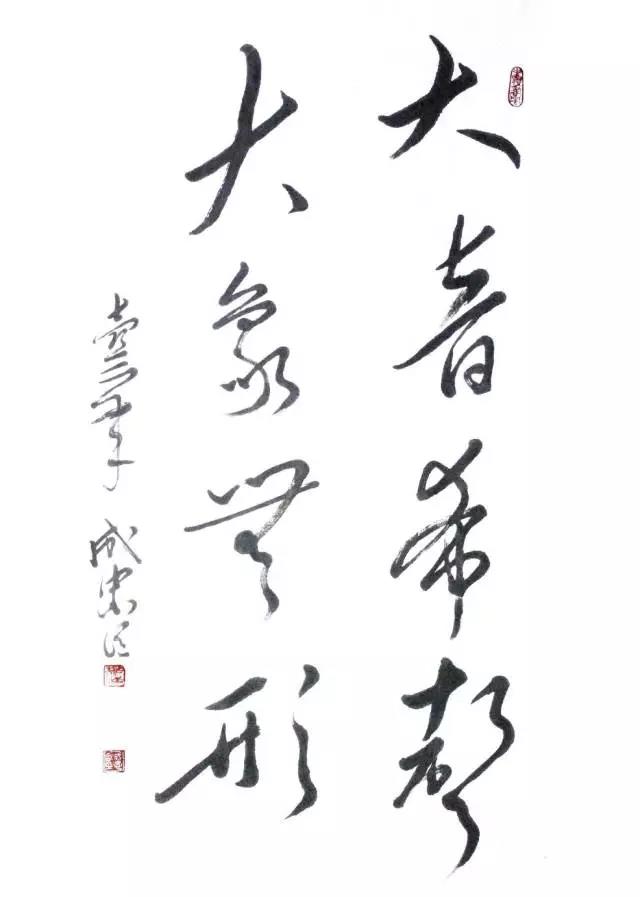 大音希聲
大象無形
成忠